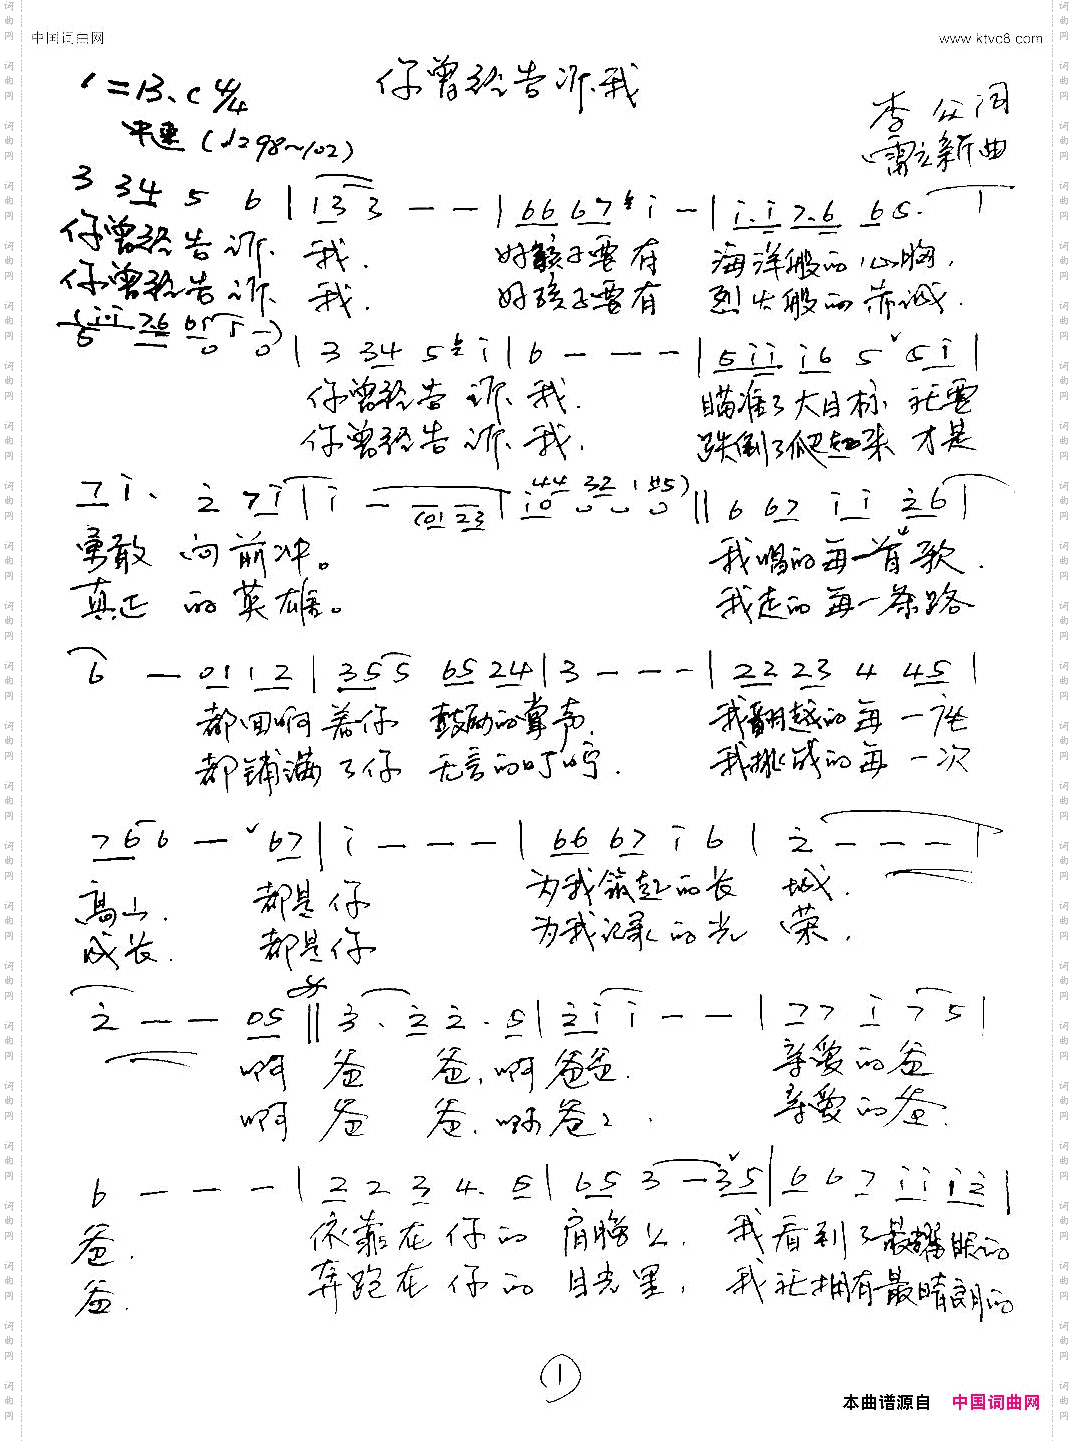 中国词曲网
www.ktvc8.com
你曾经告诉我
1=B、C 4/4
中速 (♩=98~102)
李 众 词
雷立新 曲
3 34 5 6 | 133 - - | 66 67 i - | i. i 7.6 65.
你曾经告诉 我. 好孩子要有 海洋般的心胸,
你曾经告诉 我. 好孩子要有 烈火般的赤诚.
| 3 34 5 i | 6 - - - | 5ii i6 5 5i |
你曾经告诉 我. 瞄准了大目标 就要
你曾经告诉 我. 跌倒了爬起来 才是
7i. 2 7i | i - (01 23 | i0 44 32 1 #5) || 6 67 i i 26 |
勇敢 向前冲。 我唱的每一首歌.
真正 的英雄。 我走的每一条路
6 - 01 12 | 355 65 24 | 3 - - - | 22 23 4 45 |
都回响着你 鼓励的掌声. 我翻越的每一座
都铺满了你 无言的叮咛. 我挑战的每一次
766 - 67 | i - - - | 66 67 i 6 | 2 - - - |
高山. 都是你 为我筑起的长 城.
成长. 都是你 为我记录的光 荣.
2 - - 05 || 3. 22. 5 | 2ii - - | 77 i 75 |
啊 爸 爸,啊爸爸. 亲爱的爸
啊 爸 爸.啊爸2. 亲爱的爸.
6 - - - | 2 2 3 4. 5 | 65 3 - 35 | 6 6 7 ii i2 |
爸. 依靠在你的 肩膀上. 我看到了最耀眼的
爸. 奔跑在你的 目光里, 我就拥有最晴朗的
1
本曲谱源自 中国词曲网